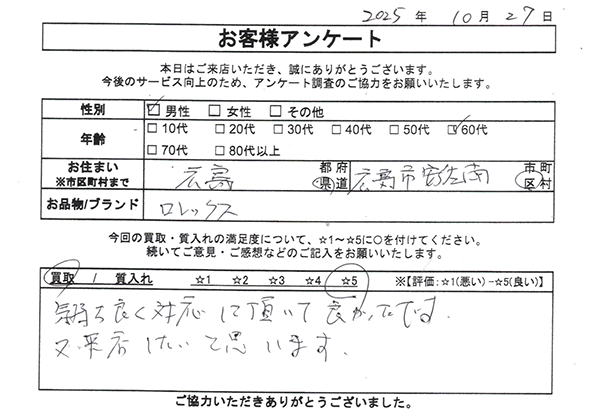 2025 年 10 月 27 日
お客様アンケート
本日はご来店いただき、誠にありがとうございます。
今後のサービス向上のため、アンケート調査のご協力をお願いいたします。
性別 ☑ 男性 □ 女性 □ その他
年齢 □ 10代 □ 20代 □ 30代 □ 40代 □ 50代 ☑ 60代
□ 70代 □ 80代以上
お住まい
※市区町村まで 広島 都府県道 広島市安佐南 市町区村
お品物/ブランド ロレックス
今回の買取・質入れの満足度について、☆1~☆5に○を付けてください。
続いてご意見・ご感想などのご記入をお願いいたします。
買取 / 質入れ ☆1 ☆2 ☆3 ☆4 ☆5 ※【評価:☆1(悪い)-☆5(良い)】
気持ち良く対応して頂いて良かったです.
又、来店したいと思います.
ご協力いただきありがとうございました。